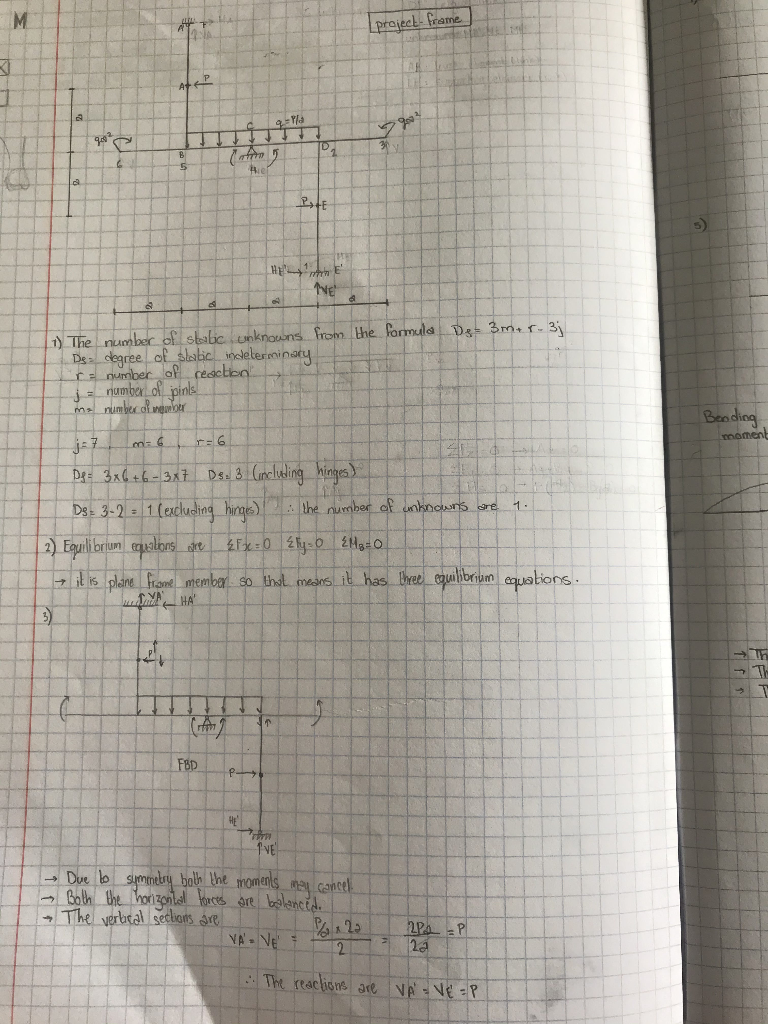 M
project-frame
A
P
a
C
q=P/a
qa²
qa²
6
B
5
D
2
3
a
P
E
HE'
1
E'
VE'
a
a
a
a
1) The number of static unknowns from the formula Ds = 3m + r - 3j
Ds = degree of static indeterminary
r = number of reaction
j = number of joints
m = number of member
j=7, m=6, r=6
Ds = 3x6+6-3x7 Ds=3 (including hinges)
Ds = 3-2 = 1 (excluding hinges) ∴ the number of unknowns are 1.
2) Equilibrium equations are ΣFx=0 ΣFy=0 ΣMB=0
→ it is plane frame member so that means it has three equilibrium equations.
3)
VA'
HA'
P
FBD
P
HE'
VE'
→ Due to symmetry both the moments may cancel.
→ Both the horizontal forces are balanced.
→ The vertical sections are
VA' = VE' = P/a x 2a / 2 = 2Pa / 2a = P
∴ The reactions are VA' = VE' = P
5)
Bending
moment
→ Th
→ Th
→ T